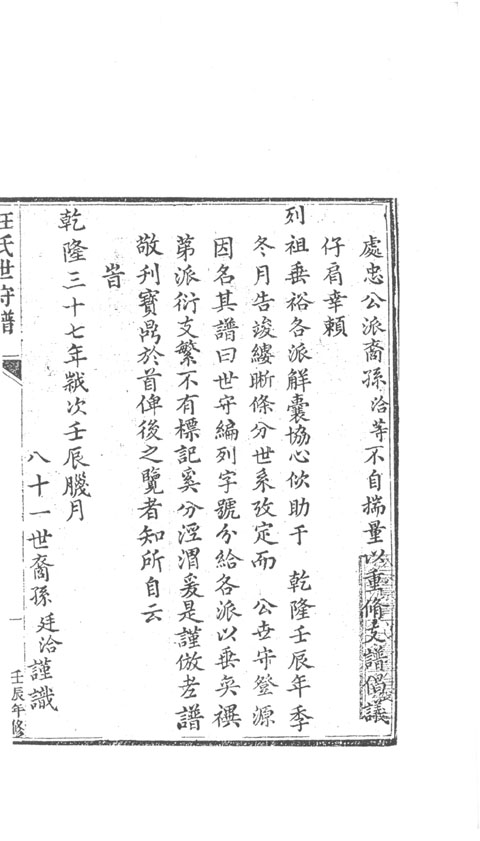 處忠公派裔孫洽等不自揣量以重脩支譜倡議
仔肩幸賴
列祖垂裕各派解囊協心佽助于 乾隆壬辰年季
冬月告竣縷晰條分世系攷定而 公世守登源
因名其譜曰世守編列字號分給各派以垂奕禩
第派衍支繁不有標記奚分涇渭爰是謹倣老譜
敬刋寶鼎於首俾後之覽者知所自云
旹
乾隆三十七年歲次壬辰臘月
八十一世裔孫廷洽謹識
汪氏世守譜
一
壬辰年修